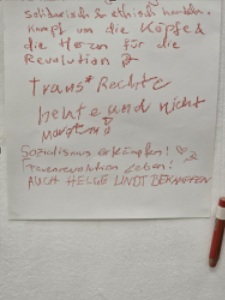 solidarisch & ethisch handeln.
Kampf um die Köpfe &
die Herzen für die
Revolution
Trans* Rechte
heute und nicht
morgen!
Sozialismus erkämpfen!
Frauenrevolution leben!
AUCH HELGE LINDT BEKÄMPFEN